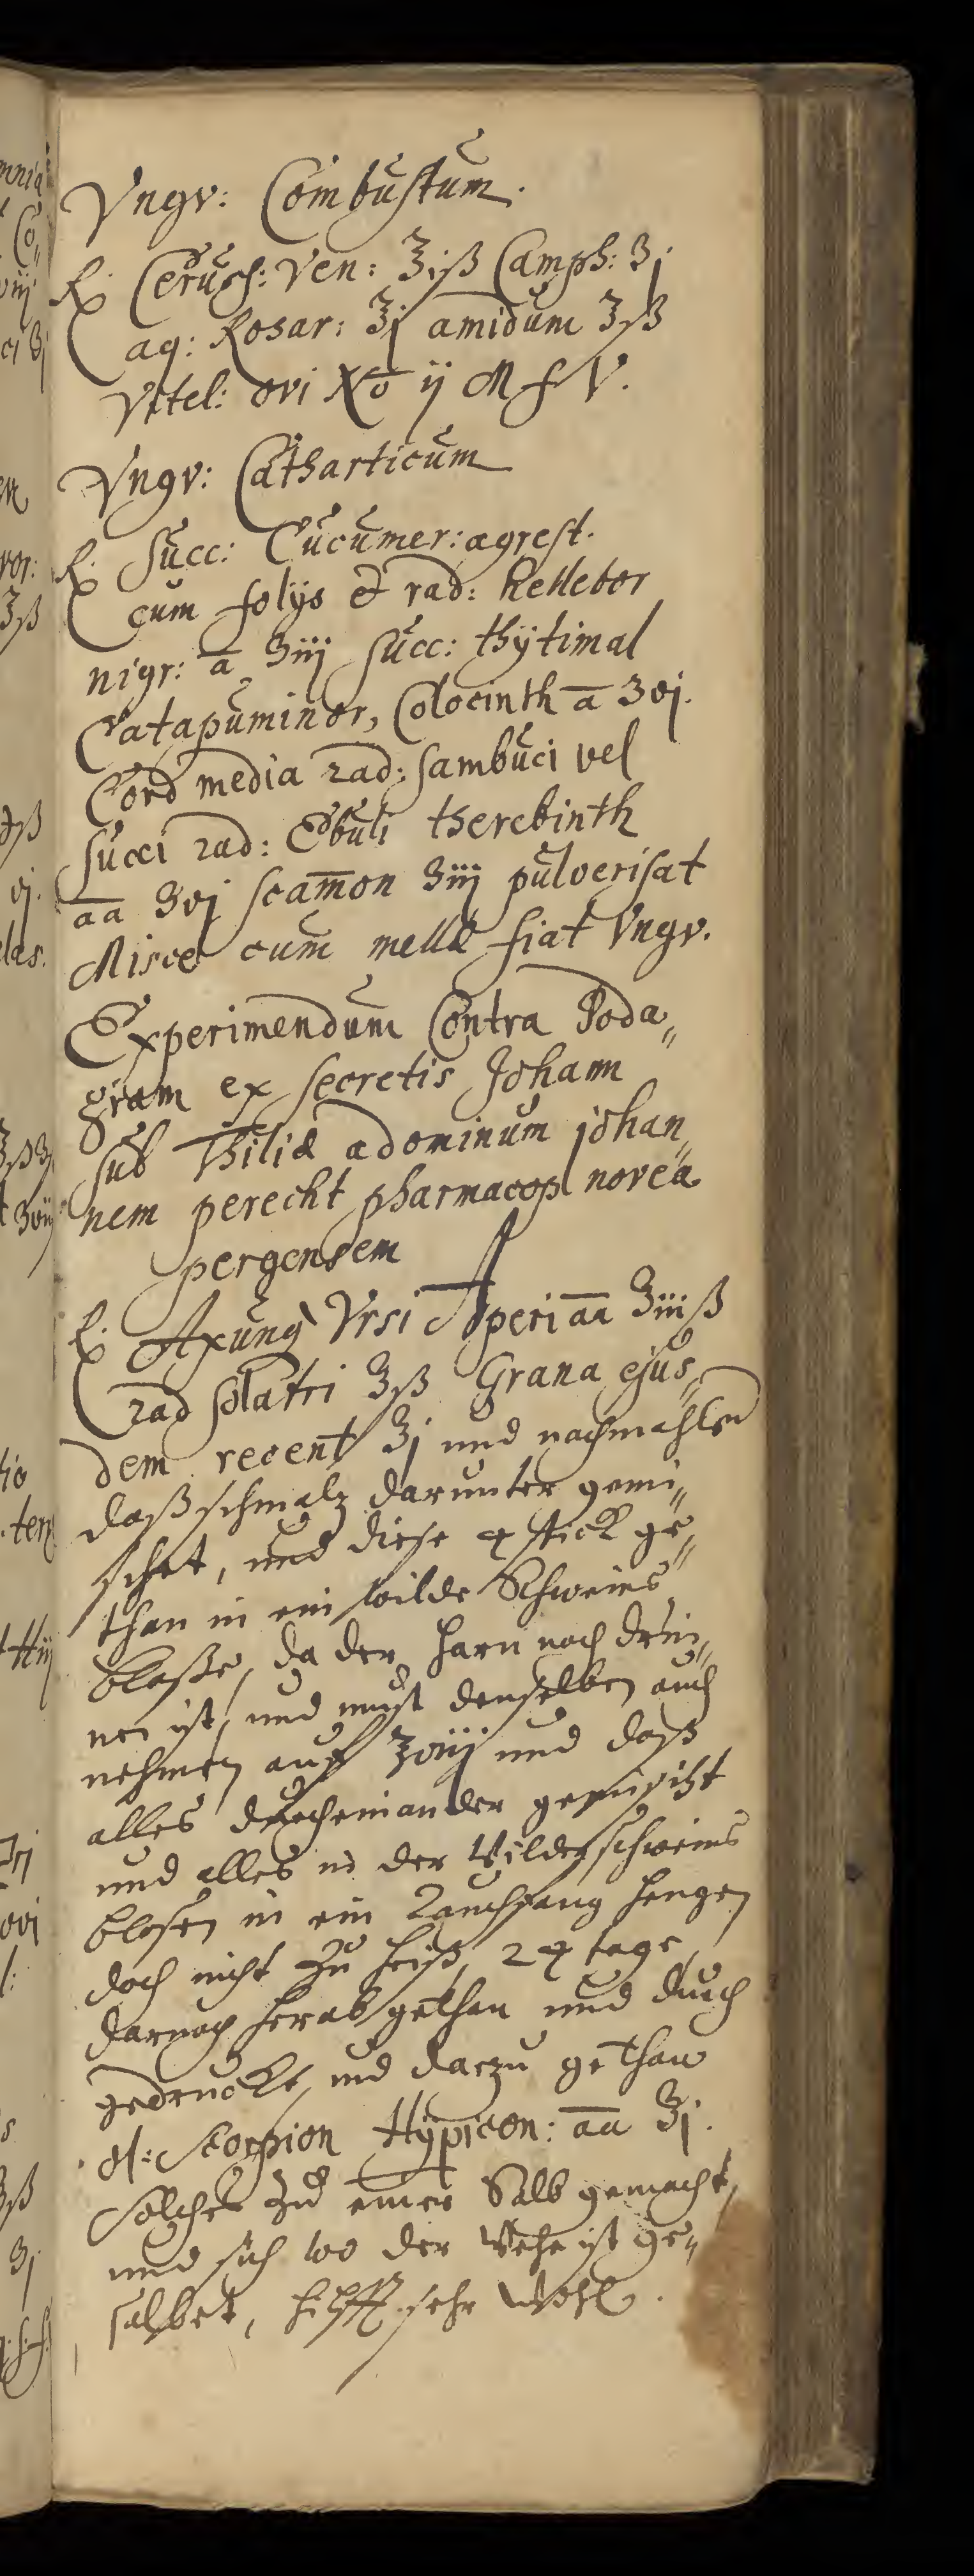 Vngv: Combustum.
℞. Ceruss: Ven: ℥iß Camph: ʒj.
aq: Rosar: ℥j amidum ℥ß
Vitel: ovi No ij M f V.
Vngv: Catharticum
℞. Succ: Cucumer: agrest.
cum folijs & rad: hellebor
nigr: ā ʒiij succ: thÿtimal
Catapuminor, Colocinth ā ʒvj.
Cord media rad: sambuci vel
succi rad: Ebuli therebinth
āā ʒvj scam̄on ʒiij pulverisat
Misce cum melle fiat Vngv.
Experimendum Contra Poda„
gram ex secretis Johann
sub Thiliæ adominum johan„
nem perecht pharmacop norea
pergensem
℞. Axung Vrsi Aperi āā ℥iiiß
rad solatri ℥ß Grana ejus„
dem recent ℥j und nachmahlen
daß schmalz darunter gemi„
schet, und diese 4 stick ge„
than in ein wilde Schweins
blaße, da der harn noch drin„
nen ist, und must denselben auch
nehmen auf ℥viij und daß
alles durcheinander gemischt
und alles in der Wilden schweins
blasen in ein Rauchfang hengen
doch nicht zu heiß, 24 tage,
darnach herab gethan und durch
gedruckt, und darzu gethan
ol: scorpion Hÿpicon: āā ℥j.
solches zu einer Salb gemacht,
und sich wo der Wehe ist ge„
salbet, hilfft sehr wohl.